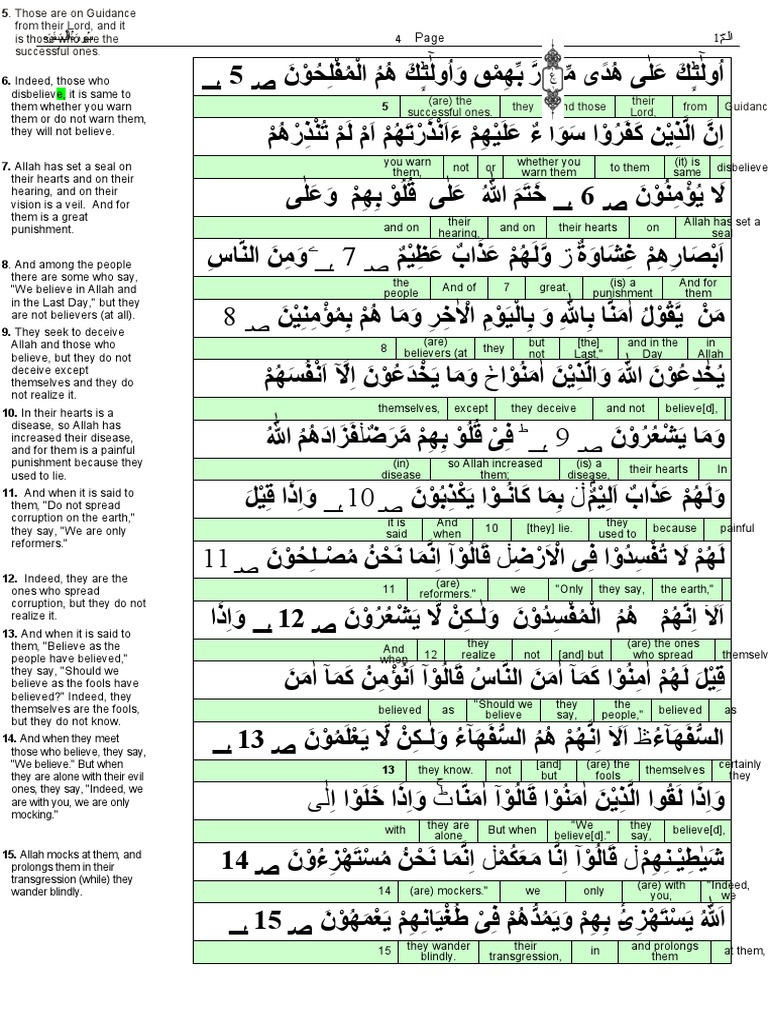 4 Page
1
5. Those are on Guidance
from their Lord, and it
is those who are the
successful ones.
6. Indeed, those who
disbelieve, it is same to
them whether you warn
them or do not warn them,
they will not believe.
7. Allah has set a seal on
their hearts and on their
hearing, and on their
vision is a veil. And for
them is a great
punishment.
8. And among the people
there are some who say,
"We believe in Allah and
in the Last Day," but they
are not believers (at all).
9. They seek to deceive
Allah and those who
believe, but they do not
deceive except
themselves and they do
not realize it.
10. In their hearts is a
disease, so Allah has
increased their disease,
and for them is a painful
punishment because they
used to lie.
11. And when it is said to
them, "Do not spread
corruption on the earth,"
they say, "We are only
reformers."
12. Indeed, they are the
ones who spread
corruption, but they do not
realize it.
13. And when it is said to
them, "Believe as the
people have believed,"
they say, "Should we
believe as the fools have
believed?" Indeed, they
themselves are the fools,
but they do not know.
14. And when they meet
those who believe, they say,
"We believe." But when
they are alone with their evil
ones, they say, "Indeed, we
are with you, we are only
mocking."
15. Allah mocks at them, and
prolongs them in their
transgression (while) they
wander blindly.
اُولٰٓئِكَ عَلٰى هُدًى وَاُولٰٓئِكَ هُمُ الْمُفْلِحُوْنَ 5
5 (are) the successful ones. they those their Lord, from
اِنَّ الَّذِيْنَ كَفَرُوْا سَوَآءٌ عَلَيْهِمْ ءَاَنْذَرْتَهُمْ اَمْ لَمْ تُنْذِرْهُمْ
you warn them, not or whether you warn them to them (it) is same disbelieve
لَا يُؤْمِنُوْنَ 6 خَتَمَ اللّٰهُ عَلٰى قُلُوْبِهِمْ وَعَلٰى
and on their hearing, and on their hearts on Allah has set a seal
اَبْصَارِهِمْ غِشَاوَةٌ وَّلَهُمْ عَذَابٌ عَظِيْمٌ 7 وَمِنَ النَّاسِ
the people And of 7 great. (is) a punishment And for them
مَنْ يَّقُوْلُ اٰمَنَّا بِاللّٰهِ وَبِالْيَوْمِ الْاٰخِرِ وَمَا هُمْ بِمُؤْمِنِيْنَ 8
8 (are) believers (at they but not [the] Last," and in the Day in Allah
يُخٰدِعُوْنَ اللّٰهَ وَالَّذِيْنَ اٰمَنُوْا وَمَا يَخْدَعُوْنَ اِلَّاۤ اَنْفُسَهُمْ
themselves, except they deceive and not believe[d],
وَمَا يَشْعُرُوْنَ 9 فِىْ قُلُوْبِهِمْ مَّرَضٌ فَزَادَهُمُ اللّٰهُ
(in) disease so Allah increased them; (is) a disease, their hearts In
وَلَهُمْ عَذَابٌ اَلِيْمٌ بِمَا كَانُوْا يَكْذِبُوْنَ 10 وَاِذَا قِيْلَ
it is said And when 10 [they] lie. they used to because painful
لَهُمْ لَا تُفْسِدُوْا فِى الْاَرْضِ قَالُوْاۤ اِنَّمَا نَحْنُ مُصْلِحُوْنَ 11
11 (are) reformers." we "Only they say, the earth,"
اَلَاۤ اِنَّهُمْ هُمُ الْمُفْسِدُوْنَ وَلٰكِنْ لَّا يَشْعُرُوْنَ 12 وَاِذَا
And when 12 they realize not [and] but (are) the ones who spread
قِيْلَ لَهُمْ اٰمِنُوْا كَمَاۤ اٰمَنَ النَّاسُ قَالُوْاۤ اَنُؤْمِنُ كَمَاۤ اٰمَنَ
believed as "Should we believe they say, the people," believed as
السُّفَهَآءُ اَلَاۤ اِنَّهُمْ هُمُ السُّفَهَآءُ وَلٰكِنْ لَّا يَعْلَمُوْنَ 13
13 they know. not [and] but (are) the fools themselves certainly they
وَاِذَا لَقُوا الَّذِيْنَ اٰمَنُوْا قَالُوْاۤ اٰمَنَّا وَاِذَا خَلَوْا اِلٰى
with they are alone But when "We believe[d]." they say, believe[d],
شَيٰطِيْنِهِمْ قَالُوْاۤ اِنَّا مَعَكُمْ اِنَّمَا نَحْنُ مُسْتَهْزِءُوْنَ 14
14 (are) mockers." we only (are) with you, "Indeed, we
اَللّٰهُ يَسْتَهْزِئُ بِهِمْ وَيَمُدُّهُمْ فِىْ طُغْيَانِهِمْ يَعْمَهُوْنَ 15
15 they wander blindly. their transgression, in and prolongs them at them,